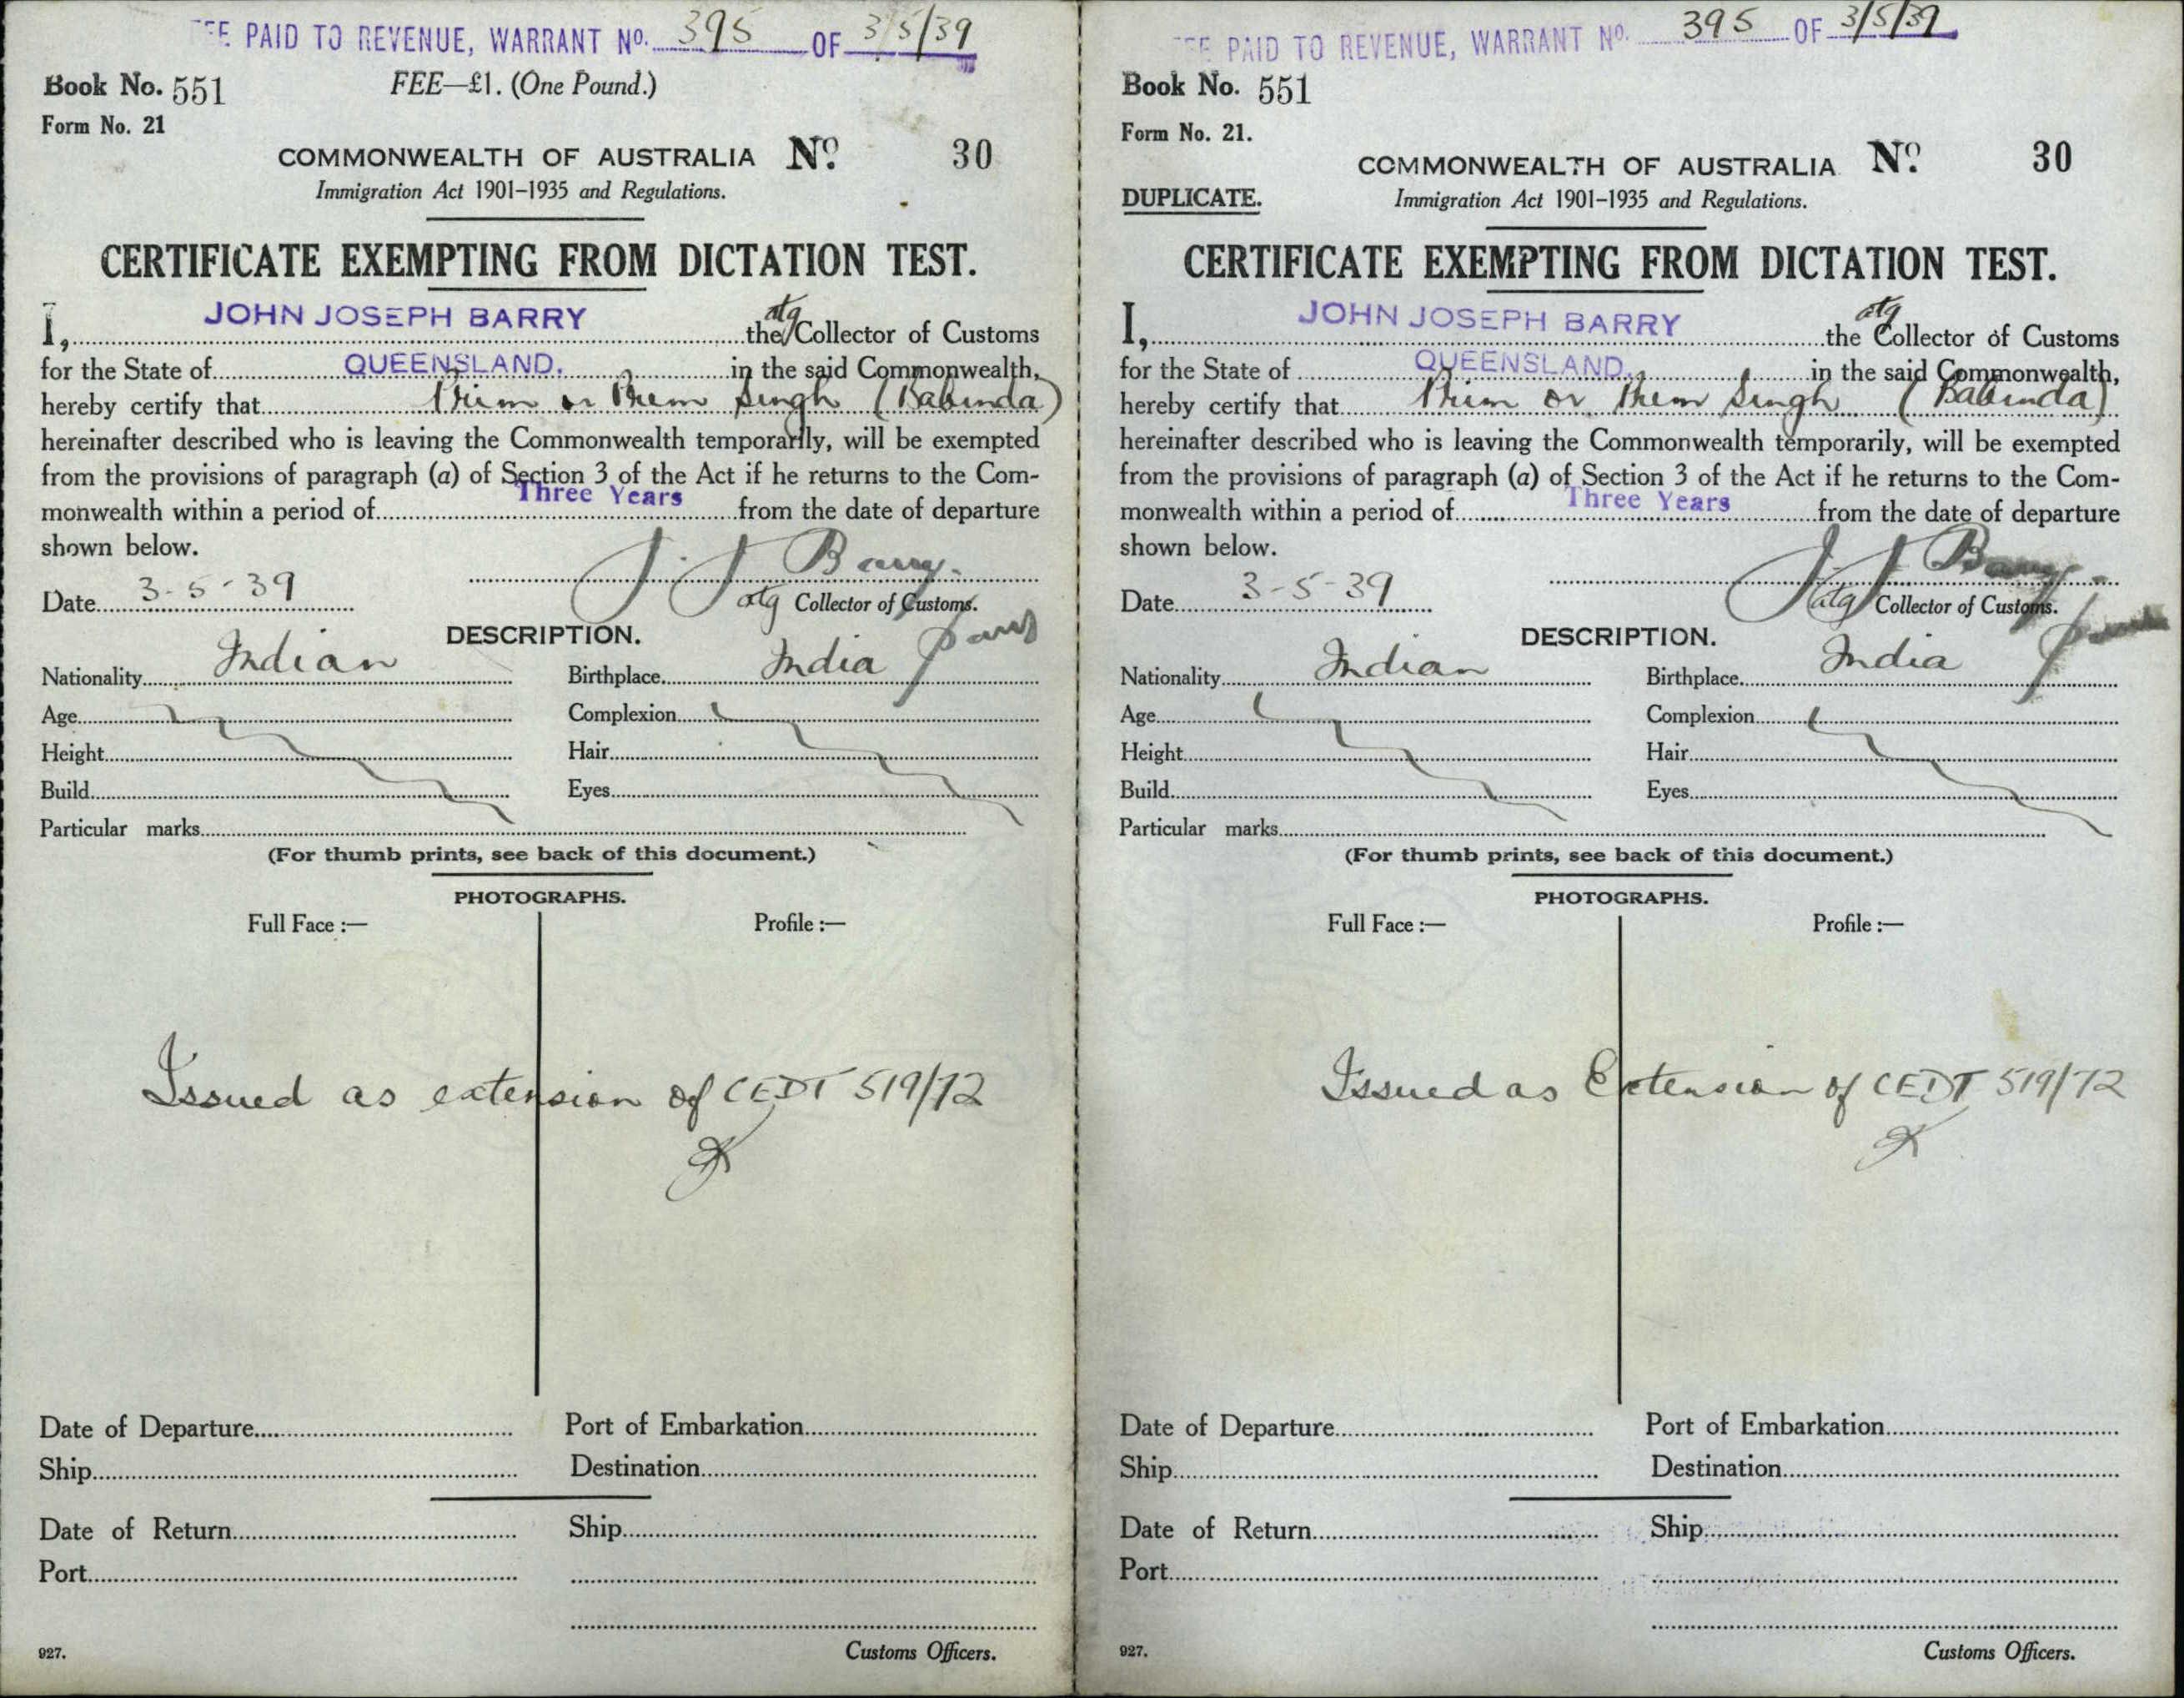 FEE PAID TO REVENUE, WARRANT No. 395 OF 3/5/39
Book No. 551
FEE—£1. (One Pound.)
Form No. 21
COMMONWEALTH OF AUSTRALIA No. 30
Immigration Act 1901–1935 and Regulations.
CERTIFICATE EXEMPTING FROM DICTATION TEST.
I, JOHN JOSEPH BARRY the atg Collector of Customs
for the State of QUEENSLAND. in the said Commonwealth,
hereby certify that Prim or Prem Singh (Babinda)
hereinafter described who is leaving the Commonwealth temporarily, will be exempted
from the provisions of paragraph (a) of Section 3 of the Act if he returns to the Com-
monwealth within a period of Three Years from the date of departure
shown below.
J. J Barry.
Date 3-5-39 atg Collector of Customs.
DESCRIPTION.
Nationality Indian Birthplace India
Age Complexion
Height Hair
Build Eyes
Particular marks
(For thumb prints, see back of this document.)
PHOTOGRAPHS.
Full Face :— Profile :—
Issued as extension of CEDT 519/72
Date of Departure Port of Embarkation
Ship Destination
Date of Return Ship
Port
927. Customs Officers.
FEE PAID TO REVENUE, WARRANT No. 395 OF 3/5/39
Book No. 551
Form No. 21.
COMMONWEALTH OF AUSTRALIA No. 30
DUPLICATE. Immigration Act 1901–1935 and Regulations.
CERTIFICATE EXEMPTING FROM DICTATION TEST.
I, JOHN JOSEPH BARRY the atg Collector of Customs
for the State of QUEENSLAND. in the said Commonwealth,
hereby certify that Prim or Prem Singh (Babinda)
hereinafter described who is leaving the Commonwealth temporarily, will be exempted
from the provisions of paragraph (a) of Section 3 of the Act if he returns to the Com-
monwealth within a period of Three Years from the date of departure
shown below.
J J Barry.
Date 3-5-39 atg Collector of Customs.
DESCRIPTION.
Nationality Indian Birthplace India
Age Complexion
Height Hair
Build Eyes
Particular marks
(For thumb prints, see back of this document.)
PHOTOGRAPHS.
Full Face :— Profile :—
Issued as Extension of CEDT 519/72
Date of Departure Port of Embarkation
Ship Destination
Date of Return Ship
Port
927. Customs Officers.